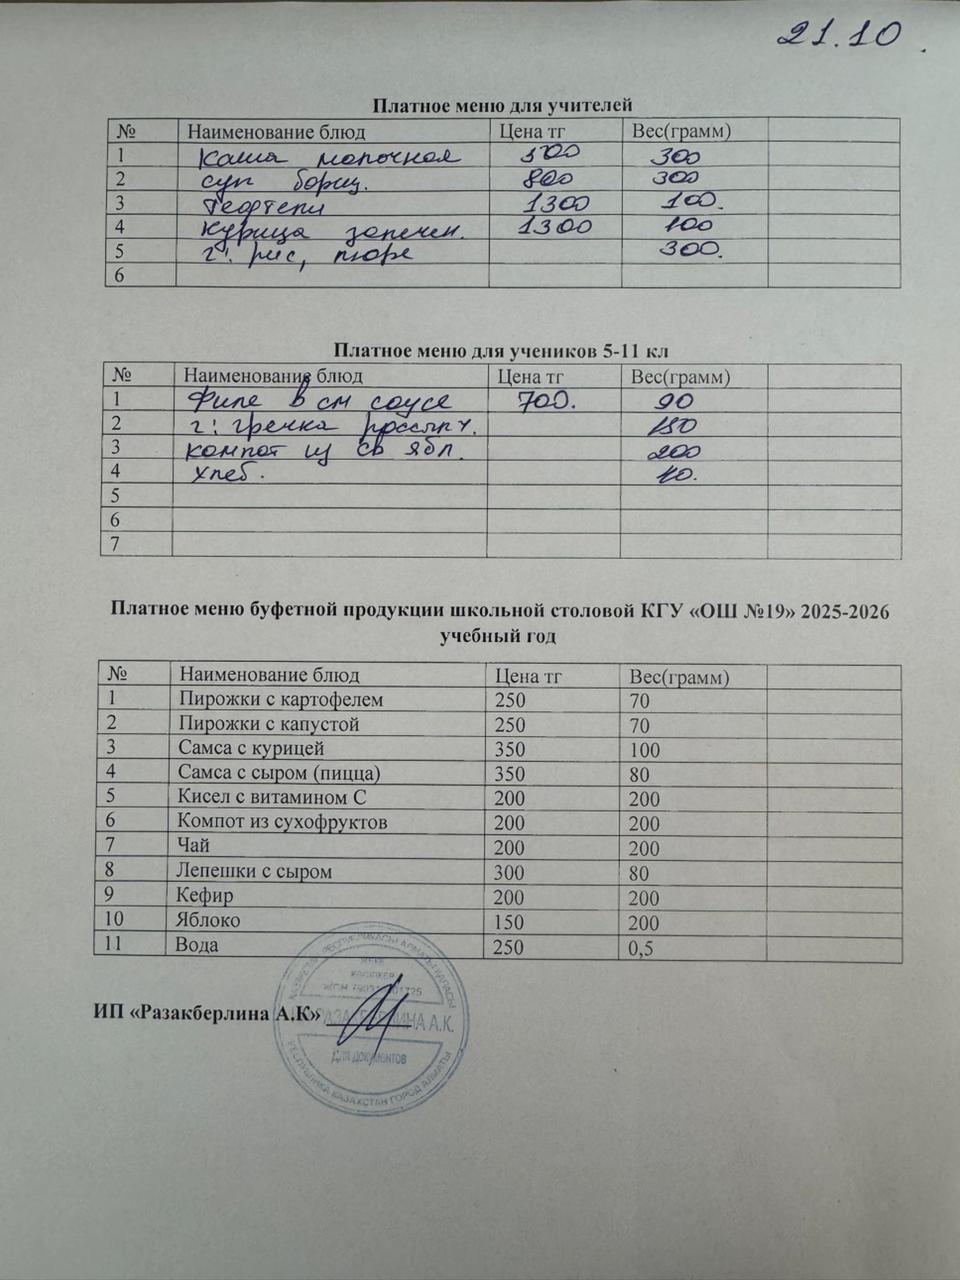 21.10
Платное меню для учителей
№ Наименование блюд Цена тг Вес(грамм)
1 Каша молочная 300
2 суп борщ. 800 300
3 Тефтели 1300 100.
4 Курица запечен. 1300 100
5 г: рис, пюре 300.
6
Платное меню для учеников 5-11 кл
№ Наименование блюд Цена тг Вес(грамм)
1 Филе в см соусе 700. 90
2 г: гречка рассыпч. 150
3 компот из св ябл. 200
4 хлеб. 40.
5
6
7
Платное меню буфетной продукции школьной столовой КГУ «ОШ №19» 2025-2026
учебный год
№ Наименование блюд Цена тг Вес(грамм)
1 Пирожки с картофелем 250 70
2 Пирожки с капустой 250 70
3 Самса с курицей 350 100
4 Самса с сыром (пицца) 350 80
5 Кисел с витамином С 200 200
6 Компот из сухофруктов 200 200
7 Чай 200 200
8 Лепешки с сыром 300 80
9 Кефир 200 200
10 Яблоко 150 200
11 Вода 250 0,5
ИП «Разакберлина А.К»
РАЗАКБЕРЛИНА А.К.
ДЛЯ ДОКУМЕНТОВ
РЕСПУБЛИКА КАЗАХСТАН ГОРОД АЛМАТЫ